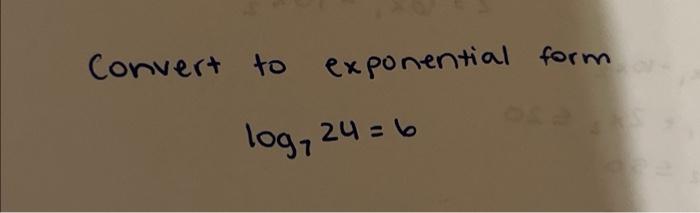 Convert to exponential form
log₇ 24 = 6